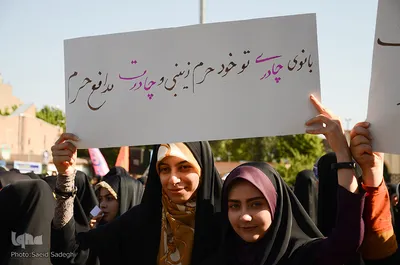 بانوی چادری تو خود حرم زینبی و چادرت مدافع حرم
iqna
Photo: Saeid Sadeghi